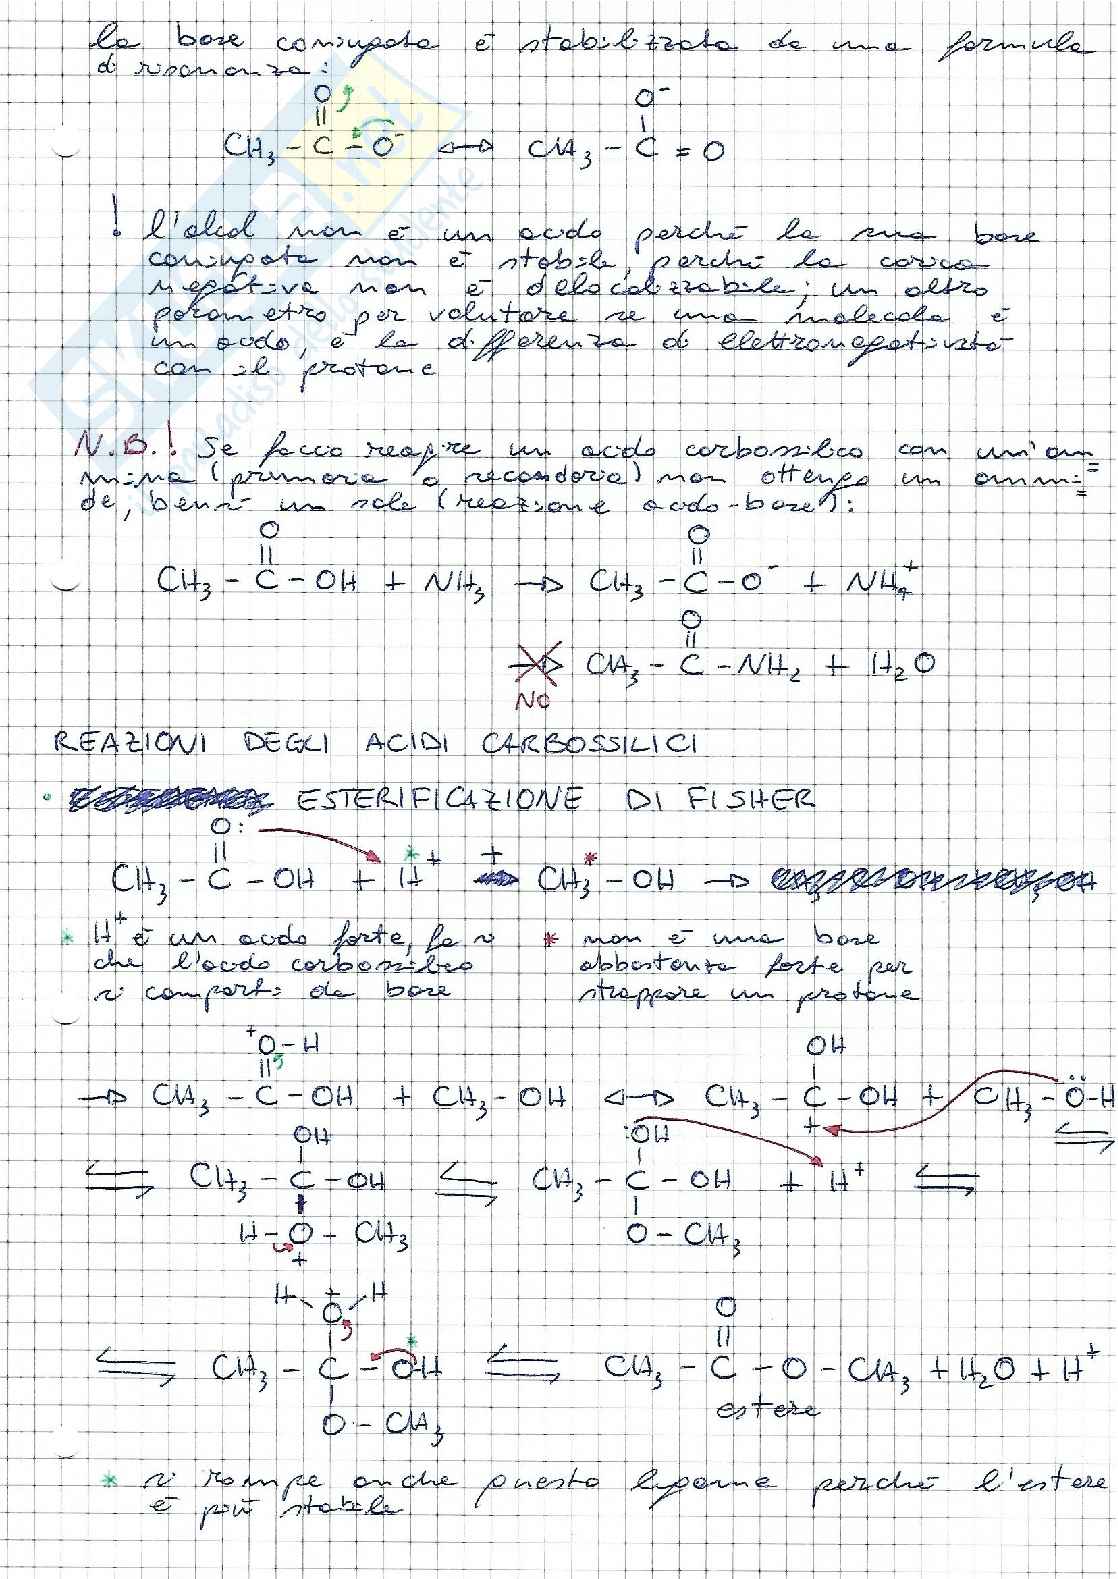 la base coniugata è stabilizzata da una formula
di risonanza:
O O⁻
|| |
CH₃ - C - O⁻ ↔ CH₃ - C = O
! l'alcol non è un acido perché la sua base
coniugata non è stabile, perché la carica
negativa non è delocalizzabile; un altro
parametro per valutare se una molecola è
un acido, è la differenza di elettronegatività
con il protone
N.B.! Se faccio reagire un acido carbossilico con un'am
mina (primaria o secondaria) non ottengo un ammi
de, bensì un sale (reazione acido-base):
O O
|| ||
CH₃ - C - OH + NH₃ → CH₃ - C - O⁻ + NH₄⁺
O
||
→ CH₃ - C - NH₂ + H₂O
NO
REAZIONI DEGLI ACIDI CARBOSSILICI
• ESTERIFICAZIONE DI FISHER
O:
||
CH₃ - C - OH + H⁺* + CH₃* - OH →
* H⁺ è un acido forte, fa sì * non è una base
che l'acido carbossilico abbastanza forte per
si comporti da base strappare un protone
⁺O - H OH
|| |
→ CH₃ - C - OH + CH₃ - OH ↔ CH₃ - C - OH + CH₃ - Ö - H
+ ⇌
OH :OH
| |
⇌ CH₃ - C - OH ⇌ CH₃ - C - OH + H⁺ ⇌
| |
H - O - CH₃ O - CH₃
+
H + H
O O
| * ||
⇌ CH₃ - C - OH ⇌ CH₃ - C - O - CH₃ + H₂O + H⁺
| estere
O - CH₃
* si rompe anche questo legame perché l'estere
è più stabile